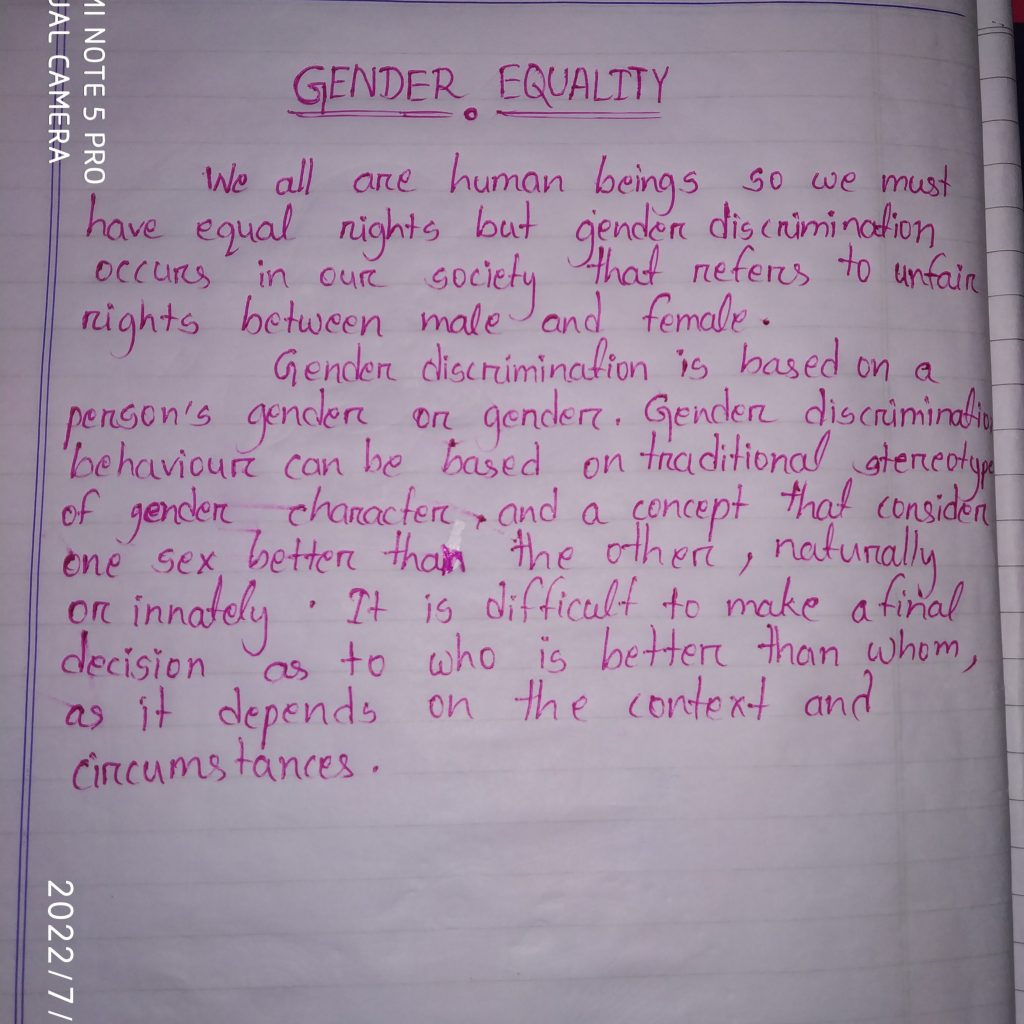 GENDER EQUALITY
We all are human beings so we must
have equal rights but gender discrimination
occurs in our society that refers to unfair
rights between male and female.
Gender discrimination is based on a
person's gender or gender. Gender discriminatio
behaviour can be based on traditional stereotype
of gender character, and a concept that consider
one sex better than the other, naturally
or innately. It is difficult to make a final
decision as to who is better than whom,
as it depends on the context and
circumstances.
MI NOTE 5 PRO
UAL CAMERA
2022/7/